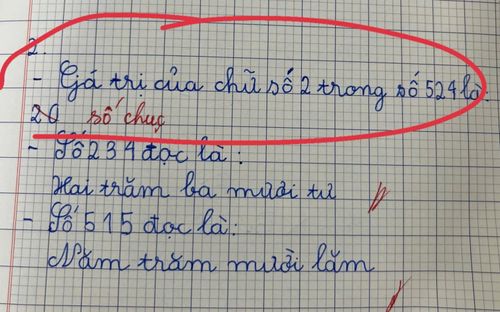 2.
- Gá trị của chữ số 2 trong số 524 là:
20 số chục
- Số 234 đọc là:
Hai trăm ba mươi tư
- Số 515 đọc là:
Năm trăm mười lăm